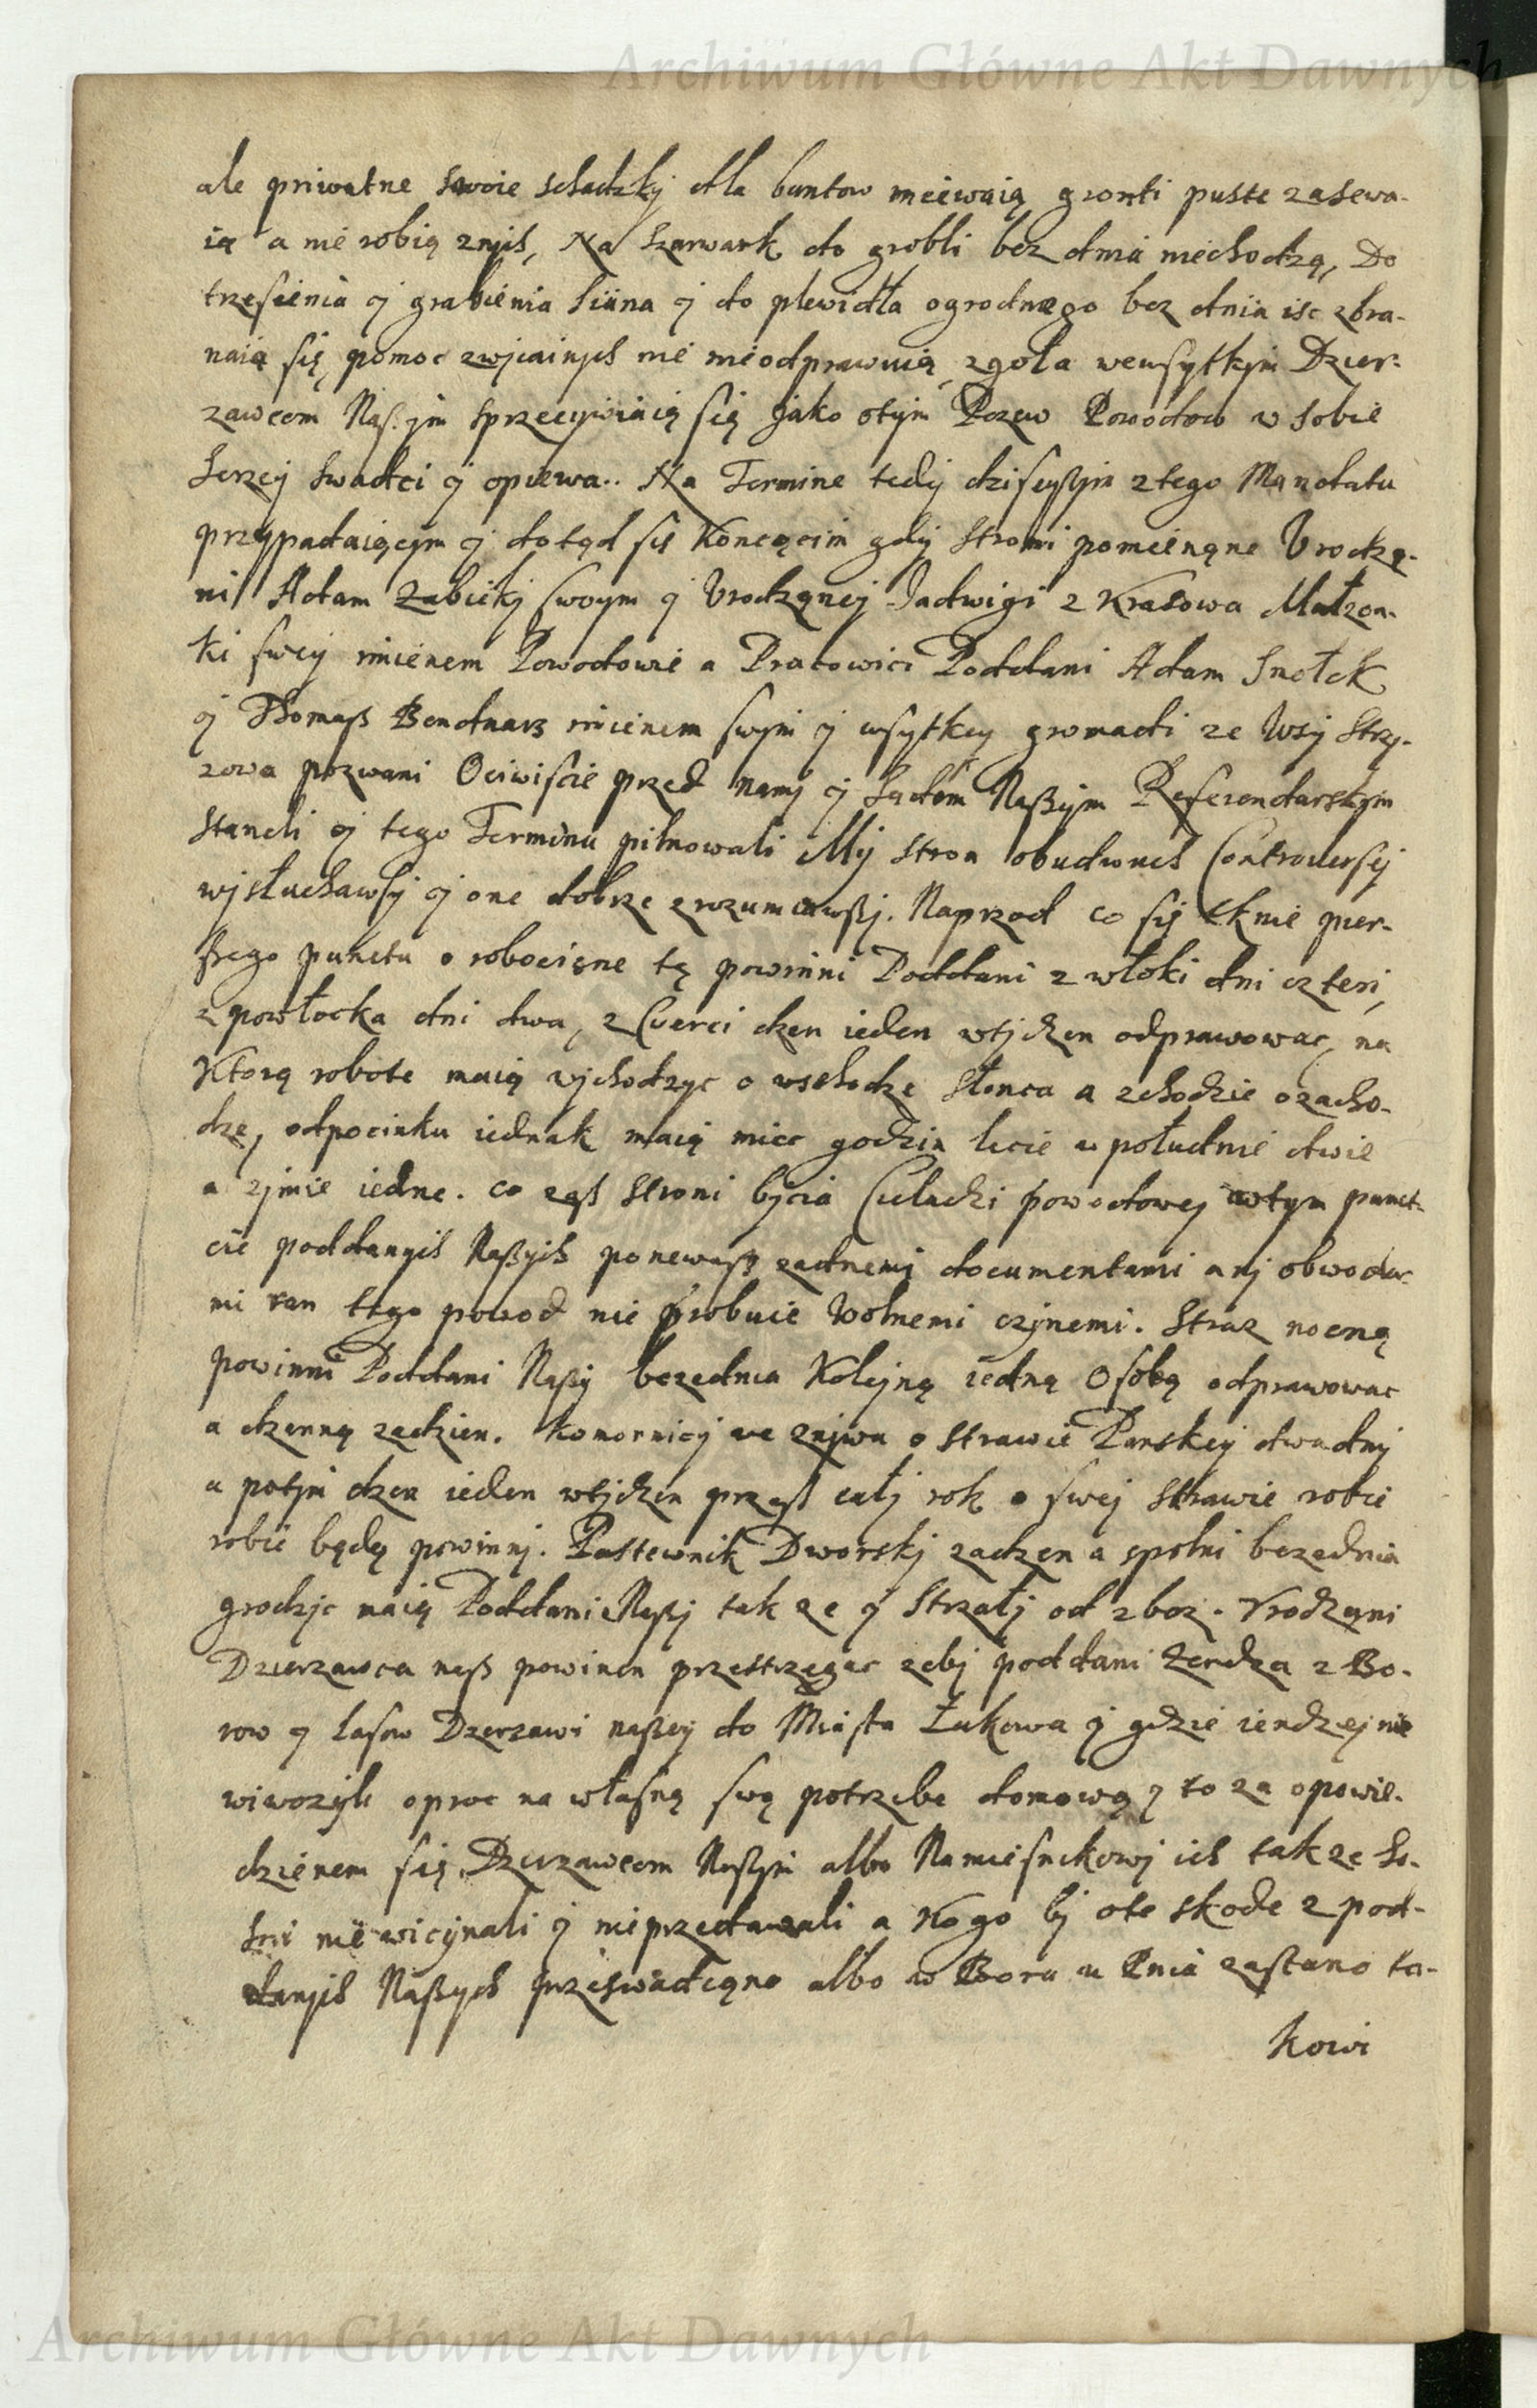 Archiwum Główne Akt Dawnych
ale priwatne swoie schadzkj dla buntow miewaią gronti puste zasewa-
ią a nie robią znich, Na szarwark do grobli bez dnia niechodzą, Do
trzesienia y grabienia siana y do plewidła ogrodnego bez dnia isc zbra-
naią się, pomoc zwjcainych nie nieodprawuią, zgoła wewsytkjm Dzier-
zawcom Naszym sprzecywiaią się jako otym Pozew Powodow w sobie
serzej swadci y opiewa.. Na Terminie tedy dzisieyszym ztego Mandatu
przypadaiącym y dotąd się Konczącim gdy Stroni pomienąne Urodzą-
ni Adam Zabickj swoym y Urodząnej Jadwigi z Krasowa Małzon-
ki swey imienem Powodowie a Pracowici Poddani Adam Smołek
y Thomasz Bendnarz imienem swym y wsytkey gromadi ze Wsy Strzy-
zowa pozwani Ociwiscie przed namj y Sądem Naszym Referendarskym
staneli y tego Terminu pilnowali My stron obudwuch Controversij
wysłuchawsy y one dobrze zrozumiawszj. Naprzod co się tknie pier-
szego punctu o robociznę tę powinni Poddani z włoki dni czteri,
z powłocka dni dwa, z Cwerci dzen ieden wtjdzen odprawowac, na
Ktorą robote maią wychodzyc o wschodzę Słonca a zchodzie ozacho-
dze, odpocinku iednak maią miec godzin lecie w południe dwie
a zjmie iedne. co zasz stroni bjcia Czeladzi powodowej wtym punct-
cie poddanych Naszych ponewasz zadnemi documentami anj obwoda-
mi ran tego powod nie probuie Wolnemi czjnemi. Straz nocną
powinni Poddani Naszy bezednia Kolejną iedną Osobą odprawowac
a dzenną zadzien. Komornicy we znjwa o strawie Panskiey dwa dnj
a potym dzen ieden wtjdzen przesz całj rok o swej strawie robic
robic będą powinnj. Pastewnik Dworskj zadzen a spolni bezednia
grodzjc maią Poddani Naszj tak ze y Strzałj od zboz. Urodząni
Dzierzawca nasz powinen przestrzęgac zebj poddani Zerdza z Bo-
row y lasow Dzerzawi naszey do Miasta Łukowa y gdzie iendzej nie
wiwozyli oproc na własną swą potrzebe domową y to za opowie-
dzienem się Dzierzawcom Naszym albo Namiesnikowj ich tak ze So-
sni nie wicynali y nieprzedawali a Kogo bj ote skode z pod-
danych Naszych przeswadcząno albo w Boru u Pnia zastano ta-
kowi
Archiwum Główne Akt Dawnych